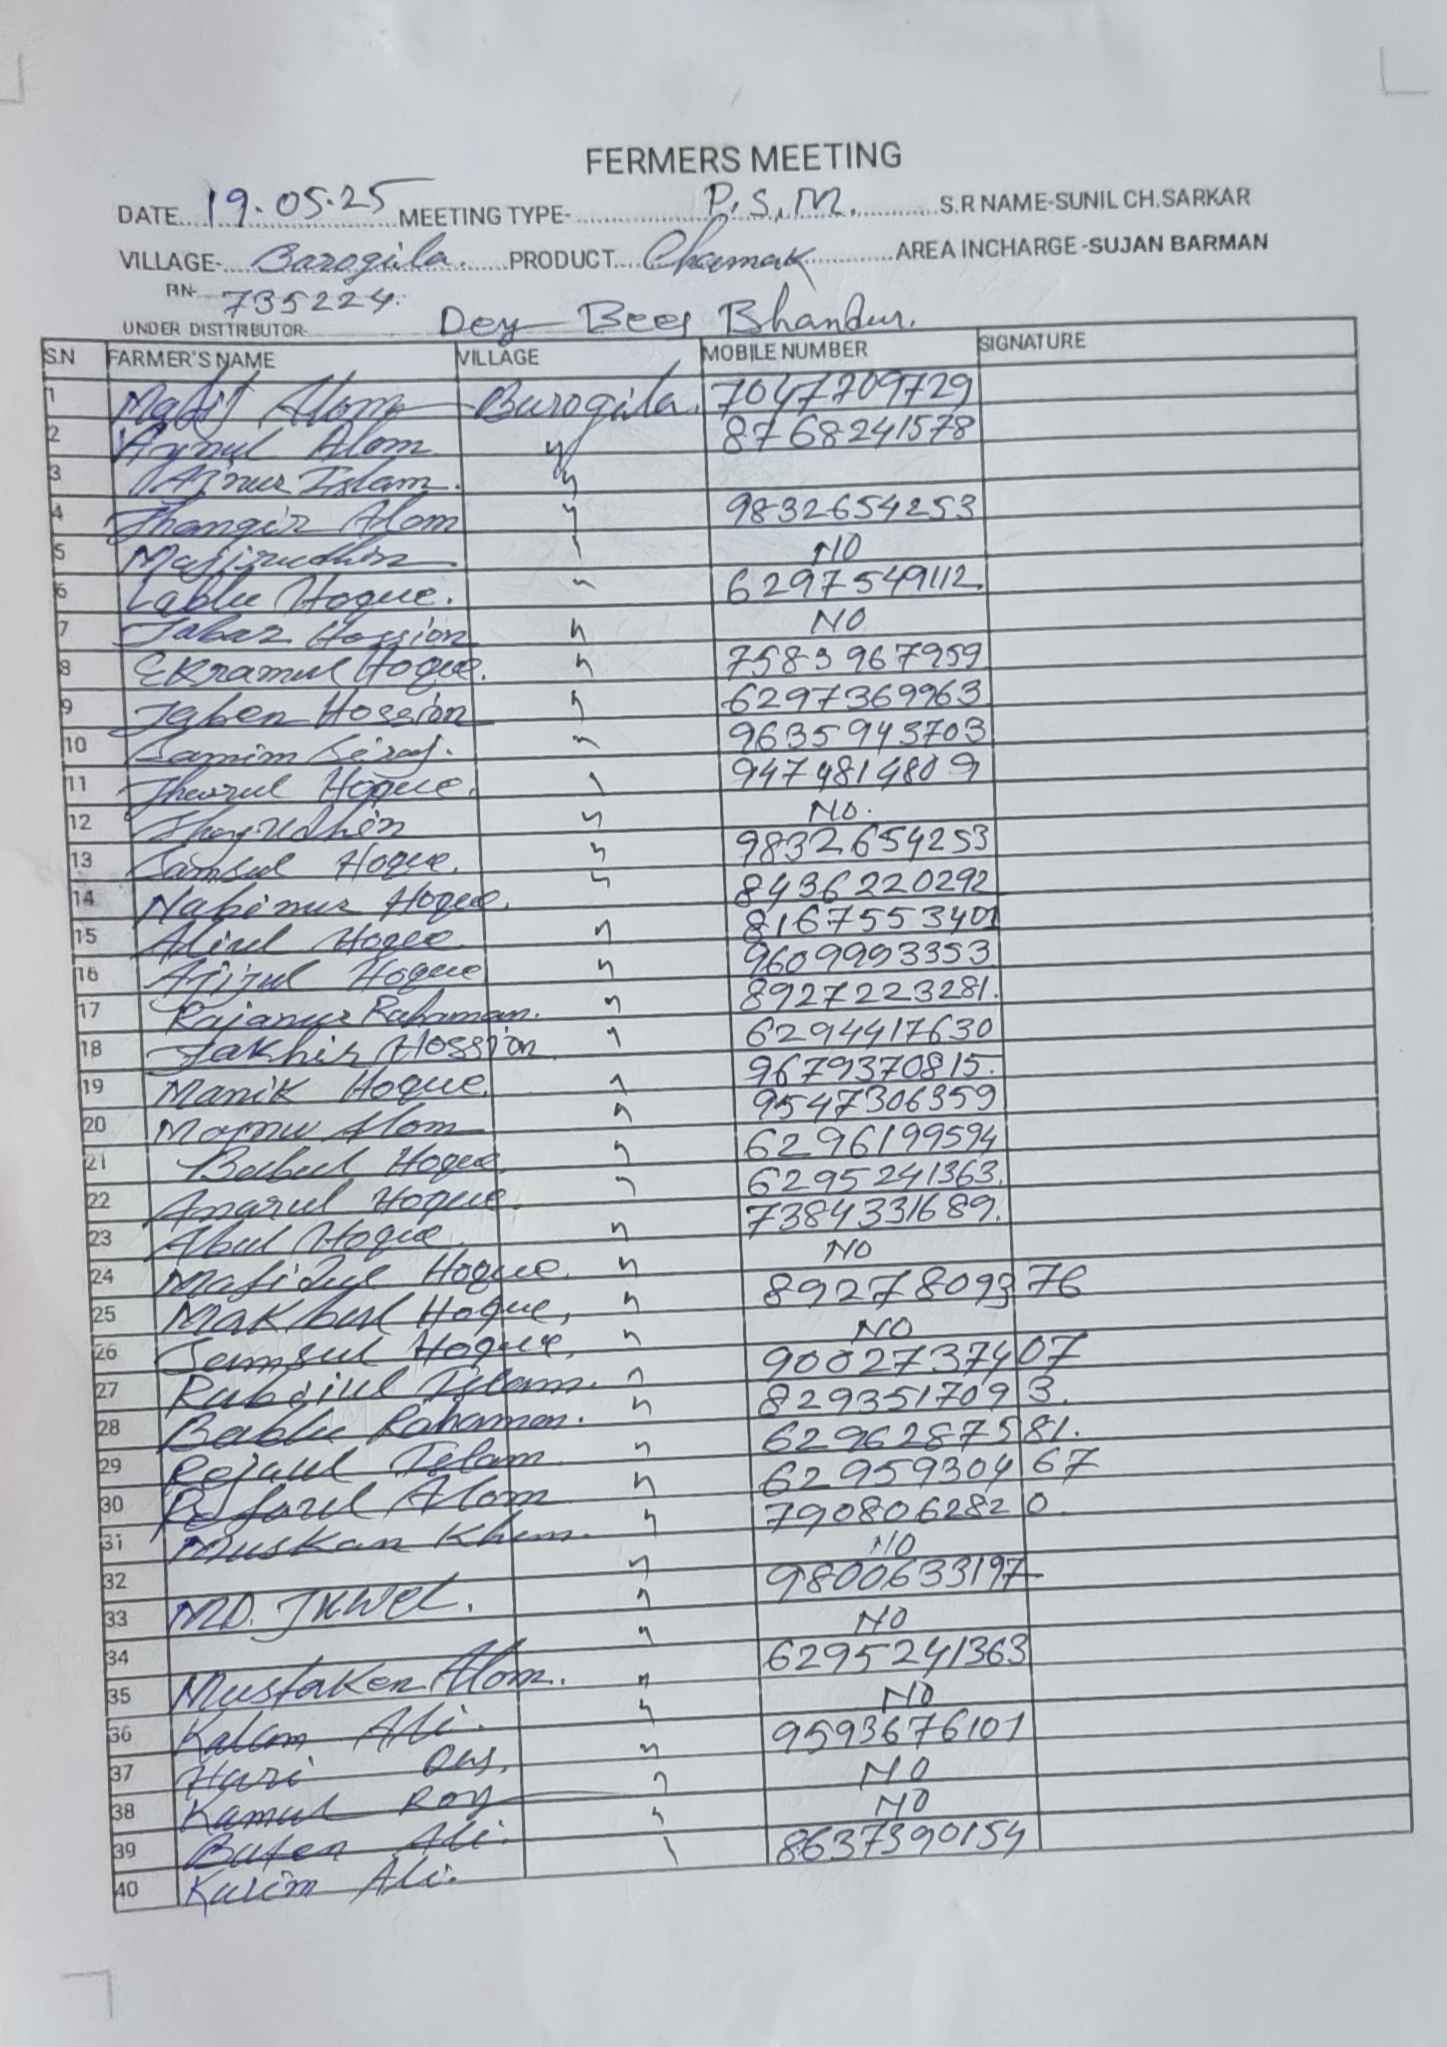 FERMERS MEETING
DATE....19.05.25....MEETING TYPE-....P.S.M.....S.R NAME-SUNIL CH.SARKAR
VILLAGE-....Barogila.....PRODUCT....Chamak....AREA INCHARGE-SUJAN BARMAN
PIN- 735224.
UNDER DISTTRIBUTOR- Dey Beej Bhandar.
S.N FARMER'S NAME VILLAGE MOBILE NUMBER SIGNATURE
1 Mafij Alom Barogila. 7047209729
2 Aynul Alom " 8768241578
3 Ajnur Islam. "
4 Jhangir Alom " 9832654253
5 Mafijuddin " NO
6 Lablu Hoque. " 6297549112.
7 Jabar Hossion " NO
8 Ekramul Hoque. " 7583967959
9 Igben Hossion " 6297369963
10 Samim Siraj. " 9635943703
11 Jheorul Hoque. " 9474814809
12 " NO.
13 Samsul Hoque. " 9832654253
14 Nabinur Hoque. " 8436220292
15 Alirul Hoque " 8167553401
16 Ajijul Hoque " 9609993353
17 Rajanur Rahaman. " 8927223281.
18 Jakhir Hossion " 6294417630
19 Manik Hoque. " 9679370815.
20 Moynu Alom " 9547306359
21 Babul Hoque. " 6296199594
22 Anarul Hoque. " 6295241363.
23 Abul Hoque. " 7384331689.
24 Mafidul Hoque. " NO
25 Makbul Hoque, " 8927809376
26 Samsul Hoque, " NO
27 Rubaiul Islam. " 9002737407
28 Bablu Rahaman. " 8293517093.
29 Rejaul Islam " 6296287581.
30 Rafarul Alom " 6295930467
31 Muskan Khan. " 7908062820.
32 " NO
33 MD. JKWEL. " 9800633197
34 " NO
35 Mustaken Alom. " 6295241363
36 Kallom Ali. " NO
37 Hari Das. " 9593676101
38 Kamul Roy " NO
39 Buten Ali. " NO
40 Karim Ali. " 8637390154